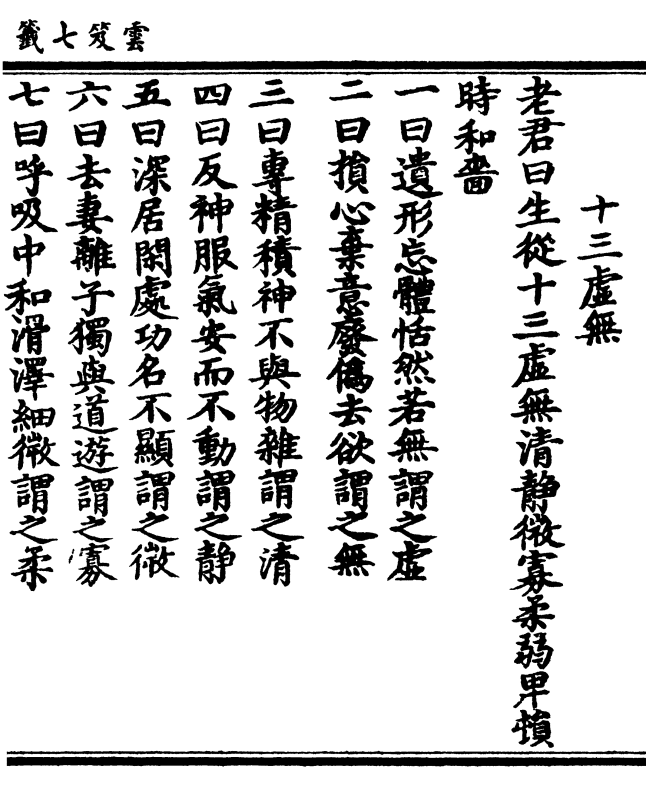 雲笈七籤
十三虛無
老君曰生從十三虛無清靜微寡柔弱卑損
時和嗇
一曰遺形忘體恬然若無謂之虛
二曰損心棄意廢僞去欲謂之無
三曰專精積神不與物雜謂之清
四曰反神服氣安而不動謂之靜
五曰深居閑處功名不顯謂之微
六曰去妻離子獨與道遊謂之寡
七曰呼吸中和滑澤細微謂之柔